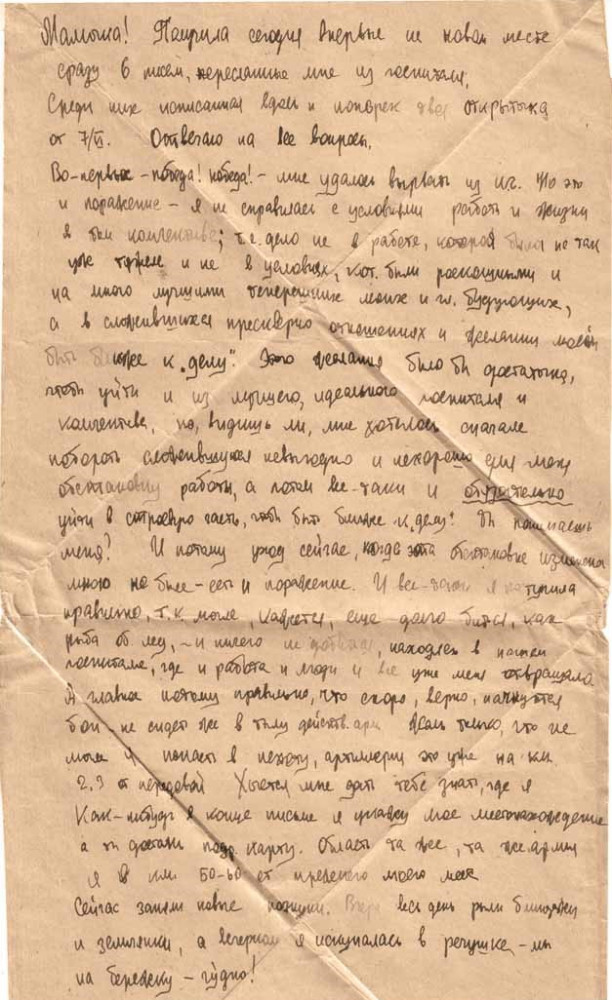 Мамочка! Получила сегодня впервые на новом месте
сразу 6 писем, пересланные мне из госпиталя.
Среди них исписанная вдоль и поперек твоя открытка
от 7/VI. Отвечаю на все вопросы.
Во-первых – победа! победа! – мне удалось вырвать из Но это
и поражение – я не справилась с условиями работы и жизни
в том коллективе; т.е. дело не в работе, которая была не так
уж тяжела и не в условиях, кот. были роскошными и
на много лучшими теперешних моих и гл. будующих,
а в сложившихся прескверно отношениях и желании моем
быть ближе к "делу". Этого желания было бы достаточно,
чтоб уйти и из лучшего, идеального госпиталя и
коллектива, но, видишь ли, мне хотелось сначала
побороть сложившуюся невыгодно и нехорошо для меня
обстановку работы, а потом все-таки и обязательно
уйти в строевую часть, чтоб быть ближе "к делу". Ты понимаешь
меня? И потому уход сейчас, когда эта обстановка изменена
мною не была – есть и поражение. И все-таки я поступила
правильно, т.к. могла, кажется, еще долго биться, как
рыба об лед, – и ничего не добиться, находясь в нашем
госпитале, где и работа и люди и все уже меня отвращало.
А главное потому правильно, что скоро, верно, начнутся
бои – не сидеть же в тылу действ. арм Жаль только, что не
могла я попасть в пехоту, артиллерия это уже на км.
2,3 от передовой Хочется мне дать тебе знать, где я
Как-нибудь в конце письма я укажу мое местонахождение
а ты достань карту. Область та же, та же армия
я в км 50-60 от прежнего моего места
Сейчас заняли новые позиции. Вчера весь день рыли блиндажи
и землянки, а вечером я искупалась в речушке – мы
на бережку – чудно!